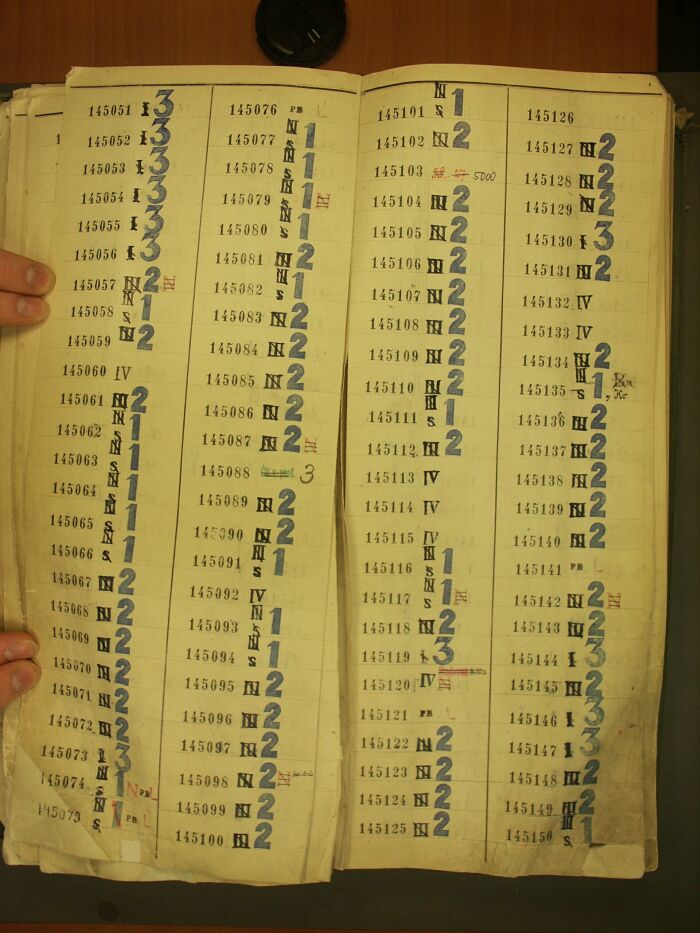 145051 I 3
145052 I 3
145053 I 3
145054 I 3
145055 I 3
145056 I 3
145057 N 2 III
145058 N S. 1
145059 N 2
145060 IV
145061 N 2
145062 N S. 1
145063 N S. 1
145064 N S. 1
145065 N S. 1
145066 N S. 1
145067 N 2
145068 N 2
145069 N 2
145070 N 2
145071 N 2
145072 N 2
145073 I 3
145074 N S. 1 N PB L
145075 N S. 1 PB L
145076 PB L
145077 N S. 1
145078 N S. 1
145079 N S. 1 III
145080 N S. 1
145081 N 2
145082 N S 1
145083 N 2
145084 N 2
145085 N 2
145086 N 2
145087 N 2 III
145088 3
145089 N 2
145090 N 2
145091 N S 1
145092 IV
145093 N S 1
145094 N S 1
145095 N 2
145096 N 2
145097 N 2
145098 N 2 III
145099 N 2
145100 N 2
145101 N S. 1
145102 N 2
145103 5000
145104 N 2
145105 N 2
145106 N 2
145107 N 2
145108 N 2
145109 N 2
145110 N 2
145111 N S. 1
145112 N 2
145113 IV
145114 IV
145115 IV
145116 N S 1
145117 N S 1 III
145118 N 2
145119 I 3
145120 IV III
145121 PB L
145122 N 2
145123 N 2
145124 N 2
145125 N 2
145126
145127 N 2
145128 N 2
145129 N 2
145130 I 3
145131 N 2
145132 IV
145133 IV
145134 N 2
145135 N S 1, Kr
145136 N 2
145137 N 2
145138 N 2
145139 N 2
145140 N 2
145141 PB L
145142 N 2 III
145143 N 2
145144 I 3
145145 N 2
145146 I 3
145147 I 3
145148 N 2
145149 N 2
145150 N S. 1